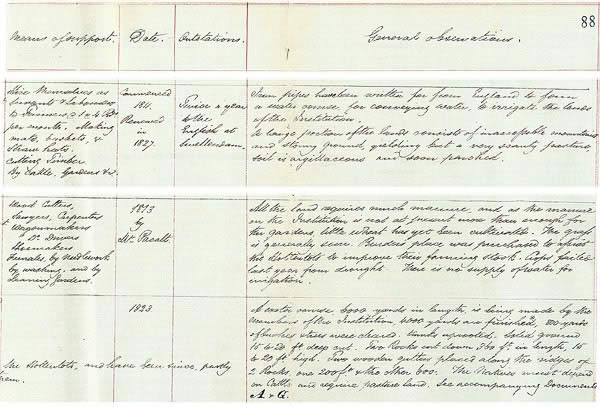 88
Means of support. Date. Outstations. General observations.
Hire themselves as
Servants & Labourers
to Farmers @ 1 a 4 Rds
per month. Making
mats, baskets, &
Straw hats.
cutting Timber
By Cattle, Gardens &c.
Commenced
1811.
Renewed
in
1827.
Twice a year
to the
English at
Swellendam.
Iron pipes have been written for from England to form
a water course for conveying water, to irrigate the lands
of the Institution.
A large portion of the lands consists of inaccessible mountains
and stony ground, yielding but a very scanty pasture,
soil is argillaceous and soon parched.
Wood Cutters,
Sawyers, Carpenters
Waggonmakers
Do. Drivers
Shoemakers
Females, by needlework
by washing, and by
Gardens.
1813
by
Mr. Pacalt.
All the land requires much manure, and as the manure
on the Institution is not at present more than enough for
the gardens, little wheat has yet been cultivable. The grass
is generally sour. place was purchased to assist
the Hottentots to improve their farming stock. Crops failed
last year from drought. There is no supply of water for
irrigation.
the Hottentots, and have been since, partly
1823
A water course 6000 yards in length, is being made by the
members of the Institution, 4000 yards are finished, 800 yards
of bushes & trees were cleared, uprooted. Solid ground
15 to 20 ft deep cut. Two Rocks cut down 360 ft in length, 15
to 20 ft high. Two wooden gutters placed along the ridges of
2 Rocks, one 200 ft & the other 600. The Natives must depend
on Cattle and require pasture land. See accompanying Documents
A & G.